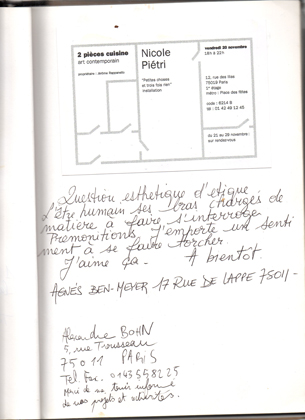 2 pièces cuisine
art contemporain
Nicole
Piétri
"Petites choses
et trois fois rien"
installation
vendredi 20 novembre
18h à 22h
12, rue des lilas
75019 Paris
1° étage
métro : Place des fêtes
code : 6214 B
tél : 01 42 49 12 45
du 21 au 29 novembre :
sur rendez-vous
Question esthétique d'étique
L'être humain ses bras chargés de
matière à faire s'interroge
Prémonitions J'emporte un senti
ment à se faire torcher.
J'aime ça - A bientôt.
AGNÈS BEN-MEYER 17 RUE DE LAPPE 75011 -
Alexandre BOHN
5, rue Trousseau
75011 PARIS
Tel. Fax. 0143558225
Merci de me tenir informé
de vos projets et activités.